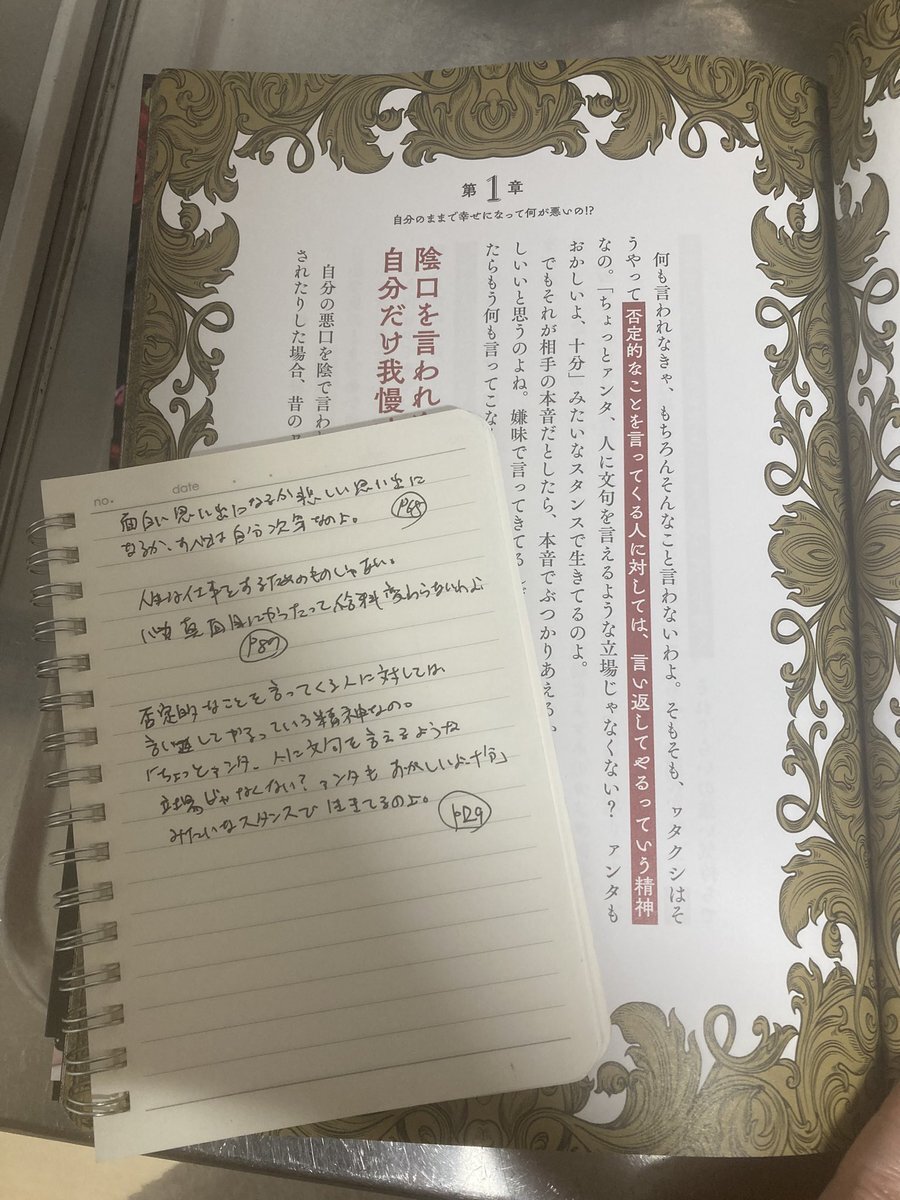 第1章
自分のままで幸せになって何が悪いの!?
何も言われなきゃ、もちろんそんなこと言わないわよ。そもそも、ヮタクシはそ
うやって否定的なことを言ってくる人に対しては、言い返してやるっていう精神
なの。「ちょっとァンタ、人に文句を言えるような立場じゃなくない? ァンタも
おかしいよ、十分」みたいなスタンスで生きてるのよ。
でもそれが相手の本音だとしたら、本音でぶつかりあえる
しいいと思うのよね。嫌味で言ってきてる
たらもう何も言ってこな
陰口を言われ
自分だけ我慢
自分の悪口を陰で言わ
されたりした場合、昔の
no.
date
面白い思い出になるか悲しい思い出に
なるか、すべては自分次第なのよ。
P65
人生は仕事をするためのものじゃない。
真面目にやったって給料変わらないわよ
P87
否定的なことを言ってくる人に対しては
言い返してやるっている精神なの。
「ちょっとァンタ、人に文句を言えるような
立場じゃなくない?ァンタもおかしいよ十分」
みたいなスタンスで生きてるのよ。
P29